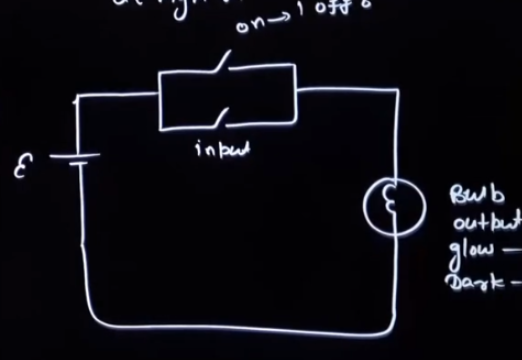 on→ 1 off 0
input
ε
Bulb
output
glow —
Dark -